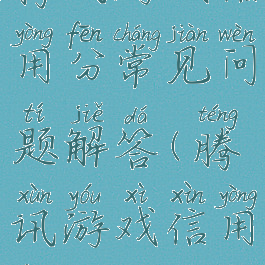 yòng fēn cháng jiàn wèn
用分常见问
tí jiě dá téng
题解答(腾
xùn yóu xì xìn yòng
讯游戏信用